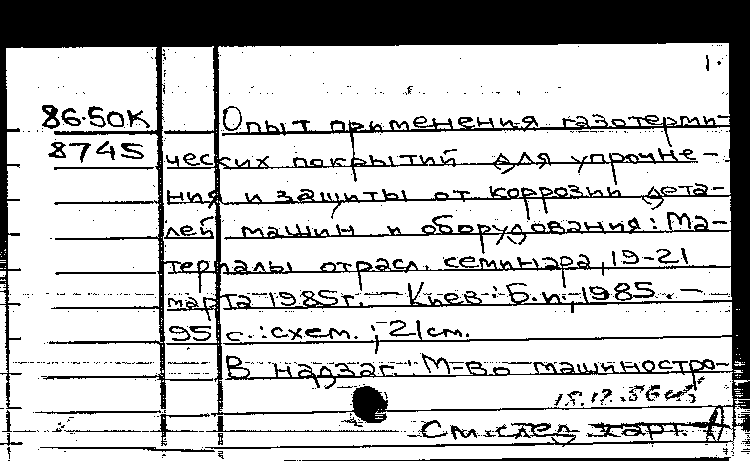 1.
86.50К
8745
Опыт применения газотерми-
ческих покрытий для упрочне-
ния и защиты от коррозии дета-
лей машин и оборудования: Ма-
териалы отрасл. семинара, 19-21
марта 1985г. — Киев: Б.и., 1985. —
95 с.: схем.; 21см.
В надзаг.: М-во машиностро-
См. след. карт.